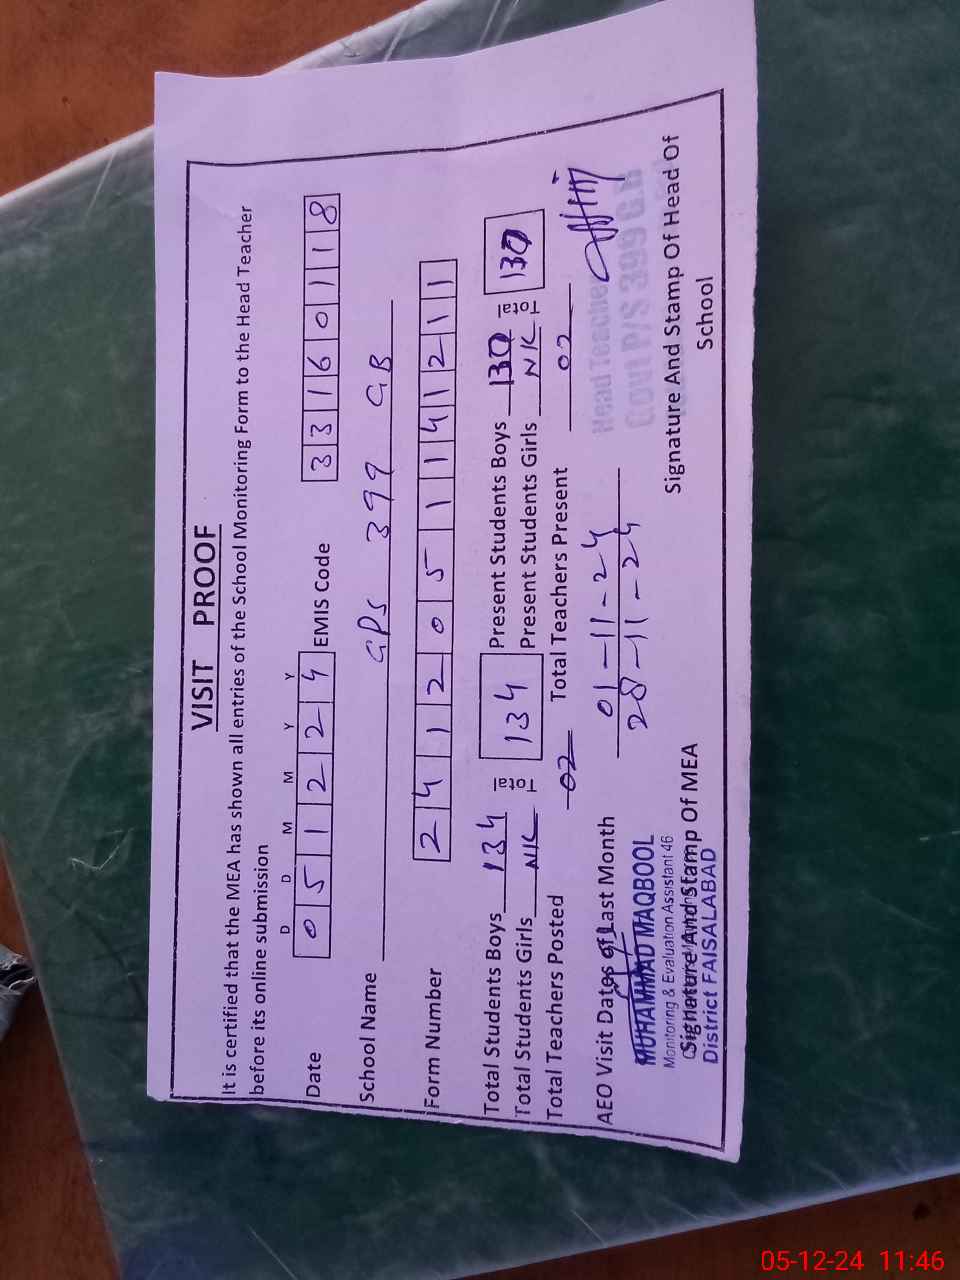 VISIT PROOF
It is certified that the MEA has shown all entries of the School Monitoring Form to the Head Teacher
before its online submission
D D M M Y Y
Date 0 5 1 2 2 4 EMIS Code 3 3 1 6 0 1 1 8
School Name GPS 399 GB
Form Number 2 4 1 2 0 5 1 1 4 1 2 1 1
Total Students Boys 134 Total 134 Present Students Boys 130 Total 130
Total Students Girls NIL Present Students Girls NIL
Total Teachers Posted 02 Total Teachers Present 02
AEO Visit Dates of Last Month 01-11-24
28-11-24
Head Teacher
Govt P/S 399 G.B
MUHAMMAD MAQBOOL
Monitoring & Evaluation Assistant 46
Signature And Stamp Of MEA
District FAISALABAD
Signature And Stamp Of Head Of
School
05-12-24 11:46